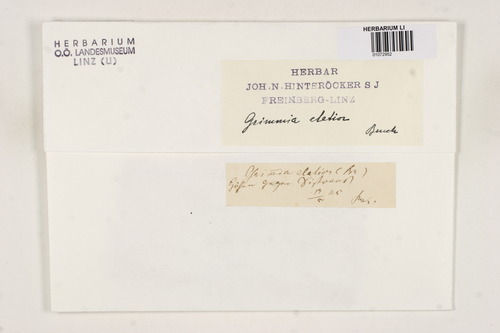 HERBARIUM
O.Ö. LANDESMUSEUM
LINZ (U)
HERBARIUM LI
01072952
HERBAR
JOH. N. HINTERÖCKER S J
FREINBERG-LINZ
Grimmia elatior
Bruch
Grimmia elatior (Br.)
gegen